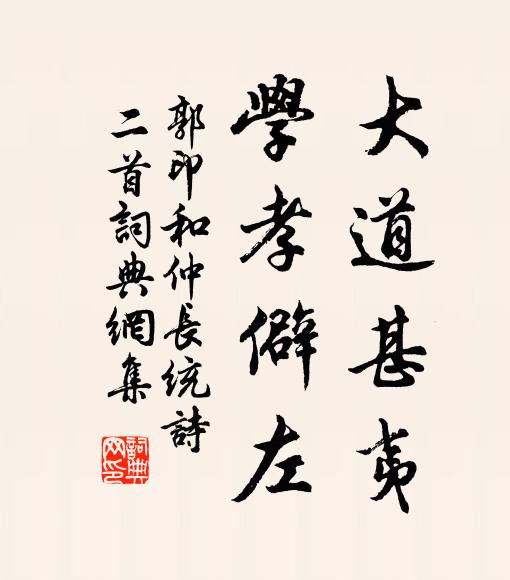 大道甚夷
學孝僻左
郭印和仲長統詩
二首詞典網集
詞典网印